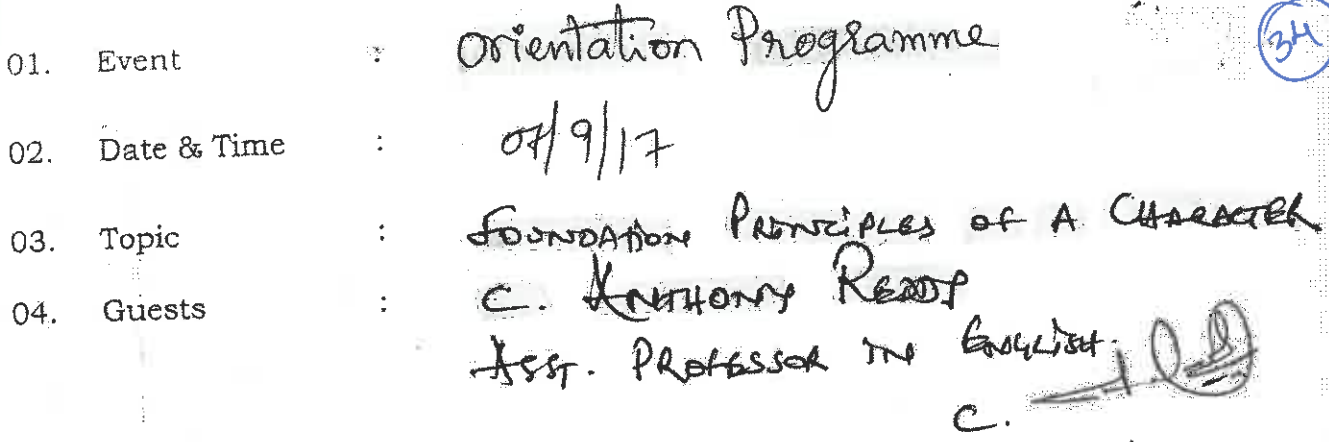 34
01. Event : Orientation Programme
02. Date & Time : 07/9/17
03. Topic : FOUNDATION PRINCIPLES OF A CHARACTER
04. Guests : C. ANTHONY REDDY
ASST. PROFESSOR IN ENGLISH.
C.